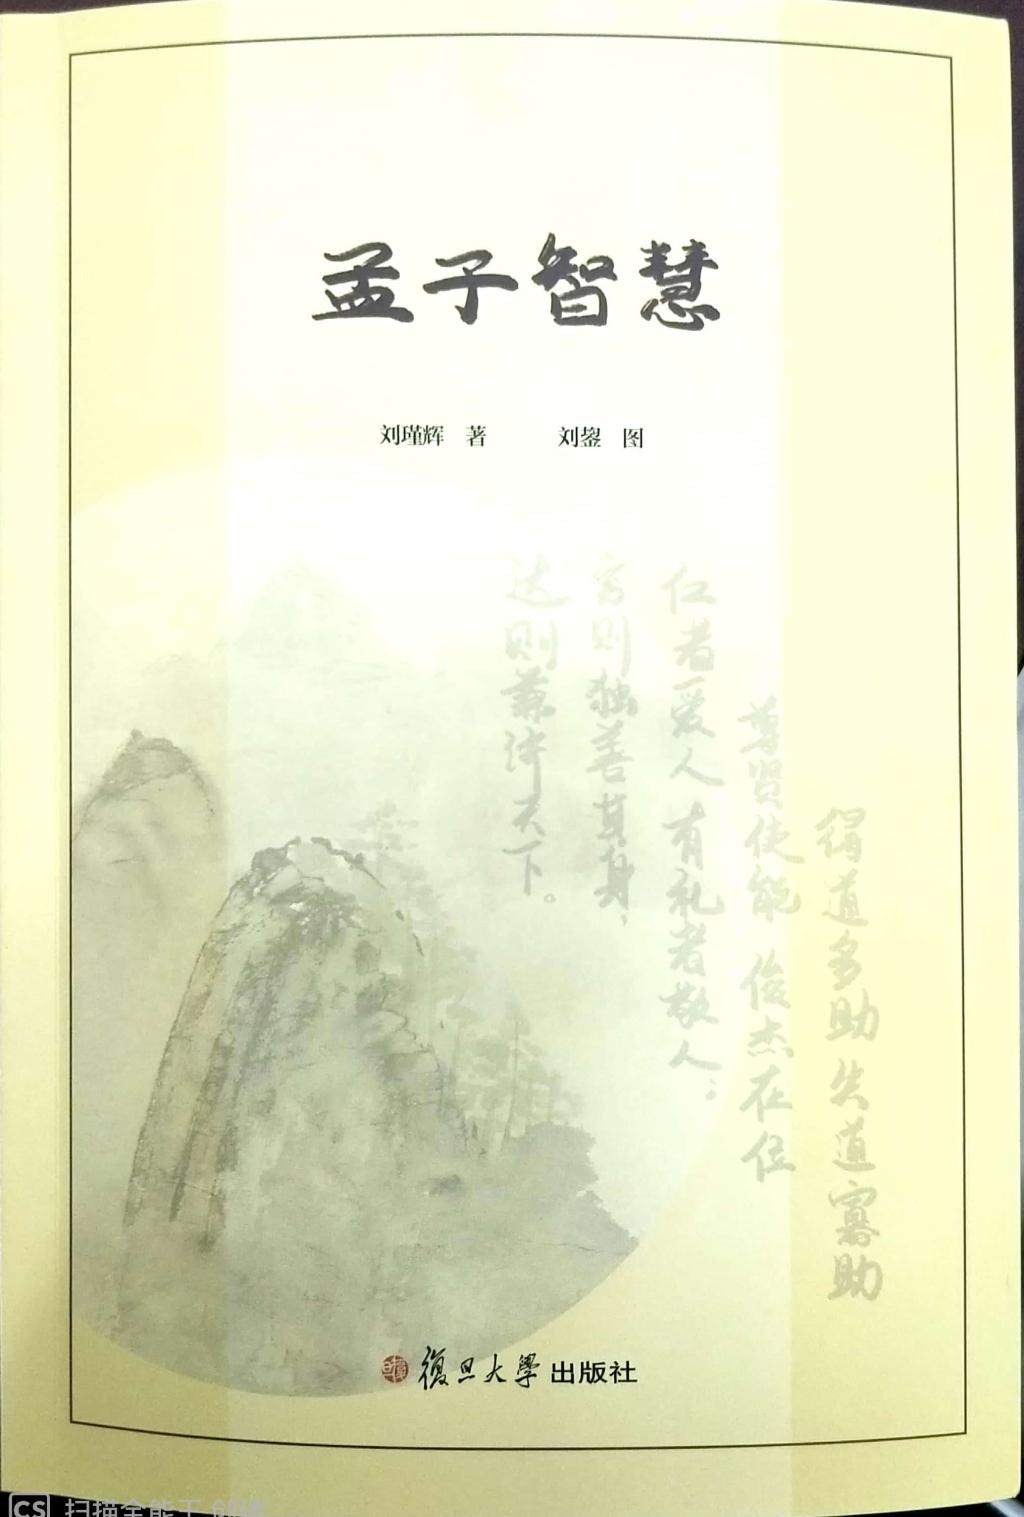 孟子智慧
刘瑾辉 著 刘鋆 图
得道多助 失道寡助
尊贤使能 俊杰在位
仁者爱人 有礼者敬人；
穷则独善其身，
达则兼济天下。
復旦大學 出版社
CS 扫描全能王 创建